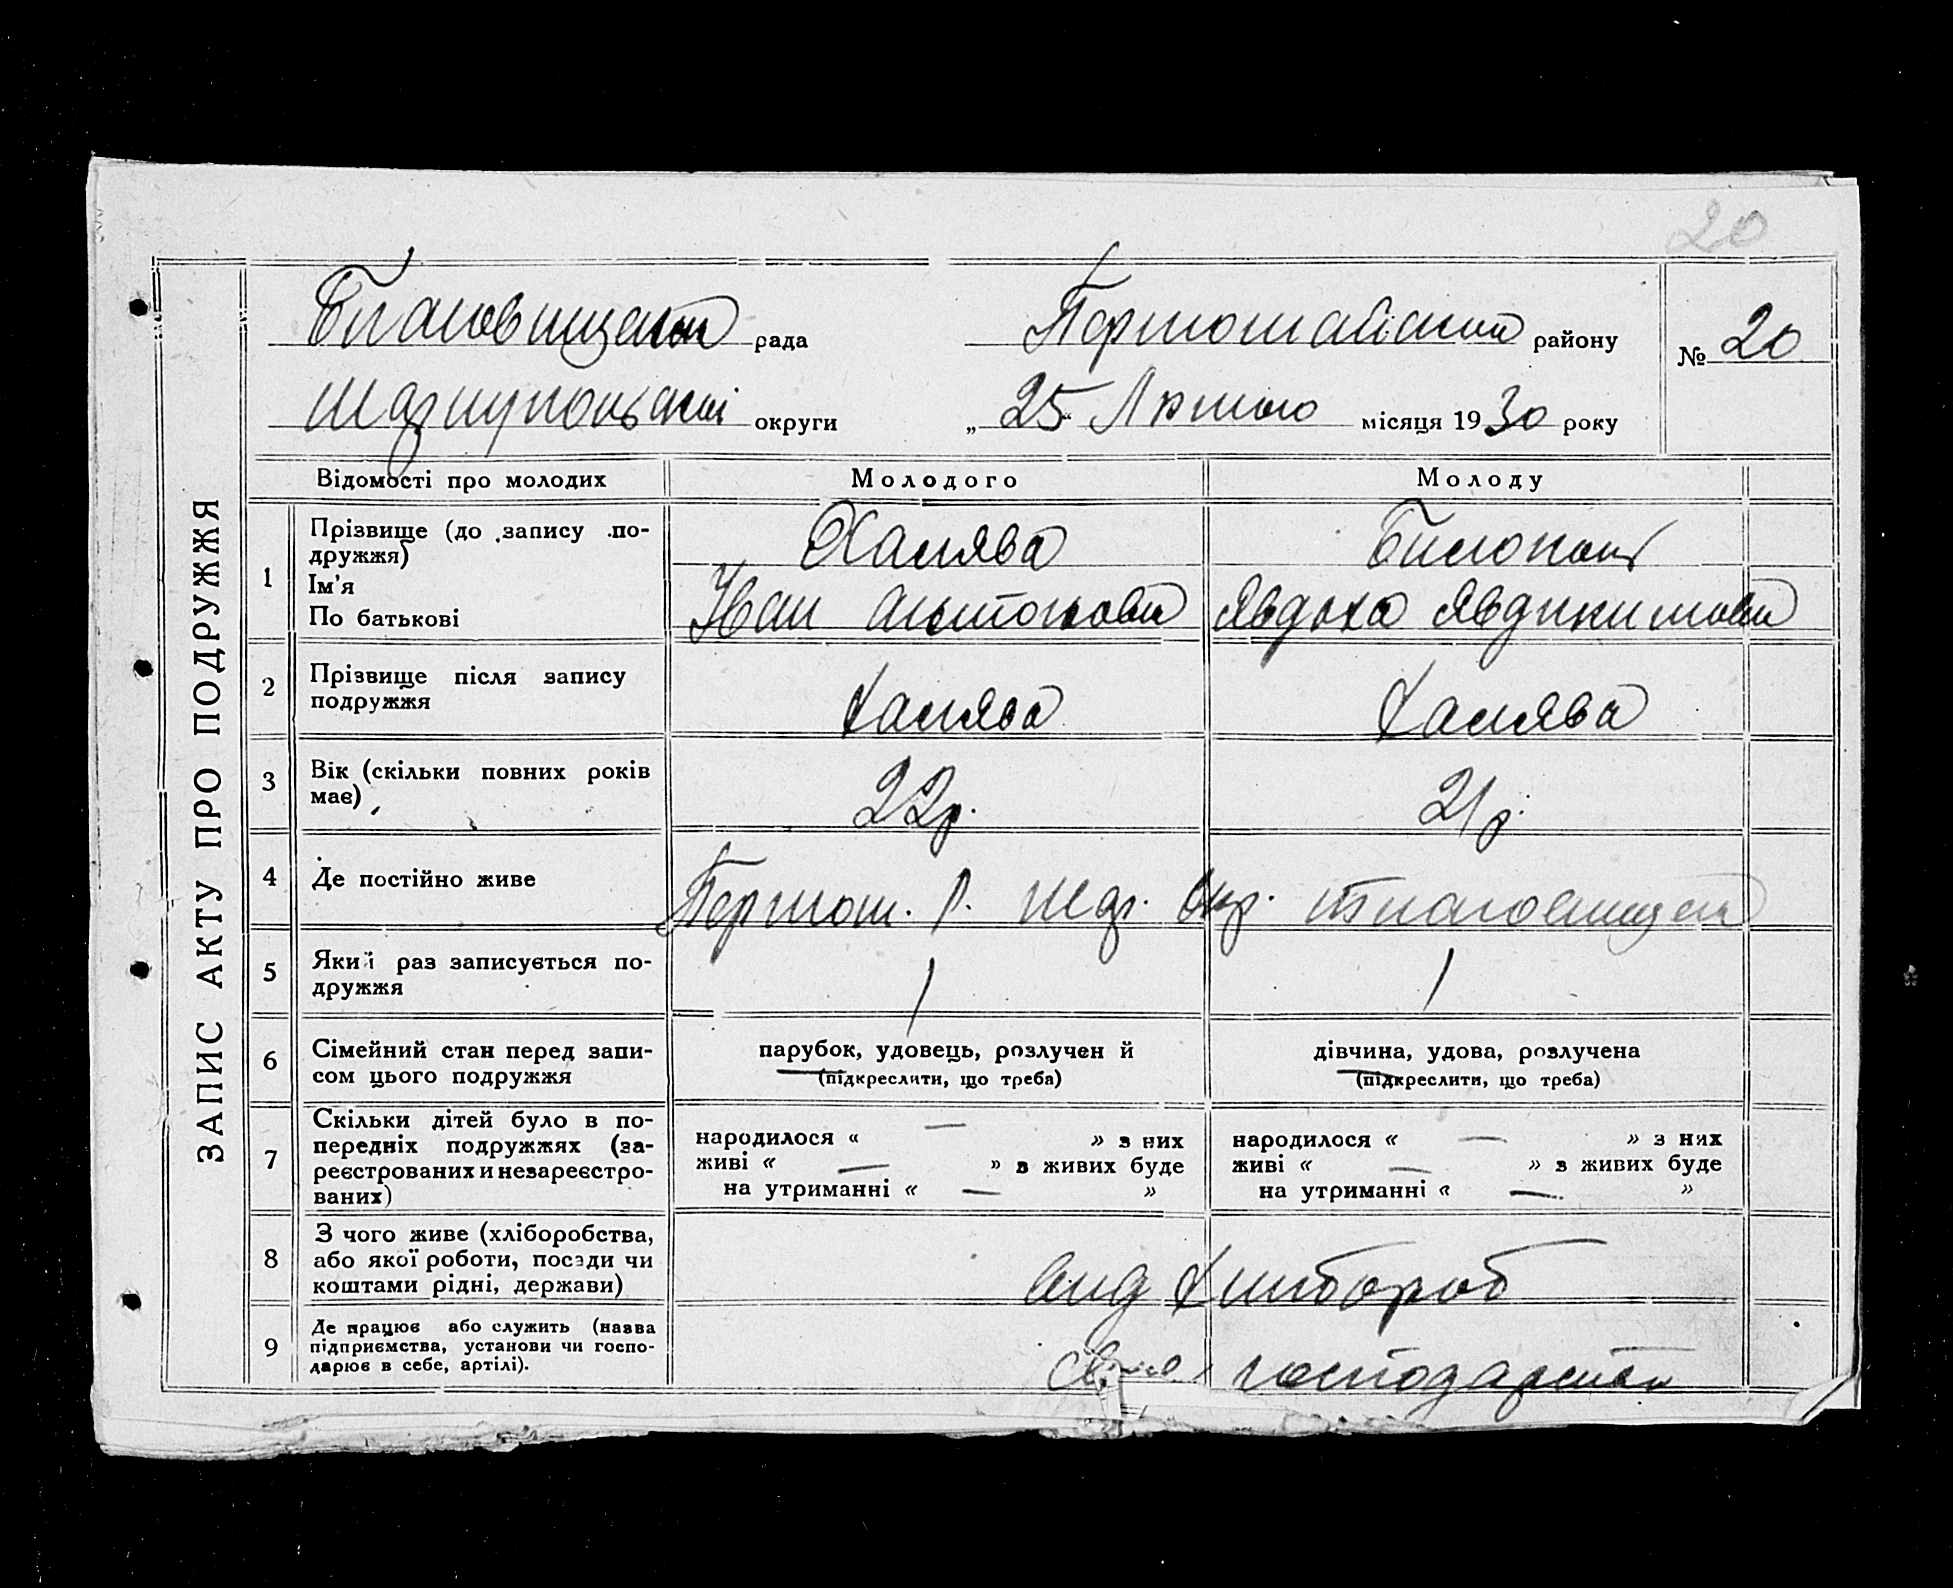 20
Благовищенська рада Першотравенский району № 20
Маріупольської округи „25“ Лютого місяця 1930 року
ЗАПИС АКТУ ПРО ПОДРУЖЖЯ
Відомості про молодих Молодого Молоду
1 Прізвище (до запису по-
дружжя) Халява Билоконь
Ім'я
По батькові Іван Антонови Явдоха Явдикимови
2 Прізвище після запису
подружжя Халява Халява
3 Вік (скільки повних років
має) 22р. 21р.
4 Де постійно живе
5 Який раз записується по-
дружжя 1 1
6 Сімейний стан перед запи-
сом цього подружжя
парубок, удовець, розлучен й
(підкреслити, що треба)
дівчина, удова, розлучена
(підкреслити, що треба)
7 Скільки дітей було в по-
передніх подружжях (за-
реєстрованих и незареєстро-
ваних)
народилося « — » з них
живі « — » з живих буде
на утриманні « — »
народилося « — » з них
живі « — » з живих буде
на утриманні « — »
8 З чого живе (хліборобства,
або якої роботи, посади чи
коштами рідні, держави)
хлибороб
9 Де працює або служить (назва
підприємства, установи чи госпо-
дарює в себе, артілі).
господарстви